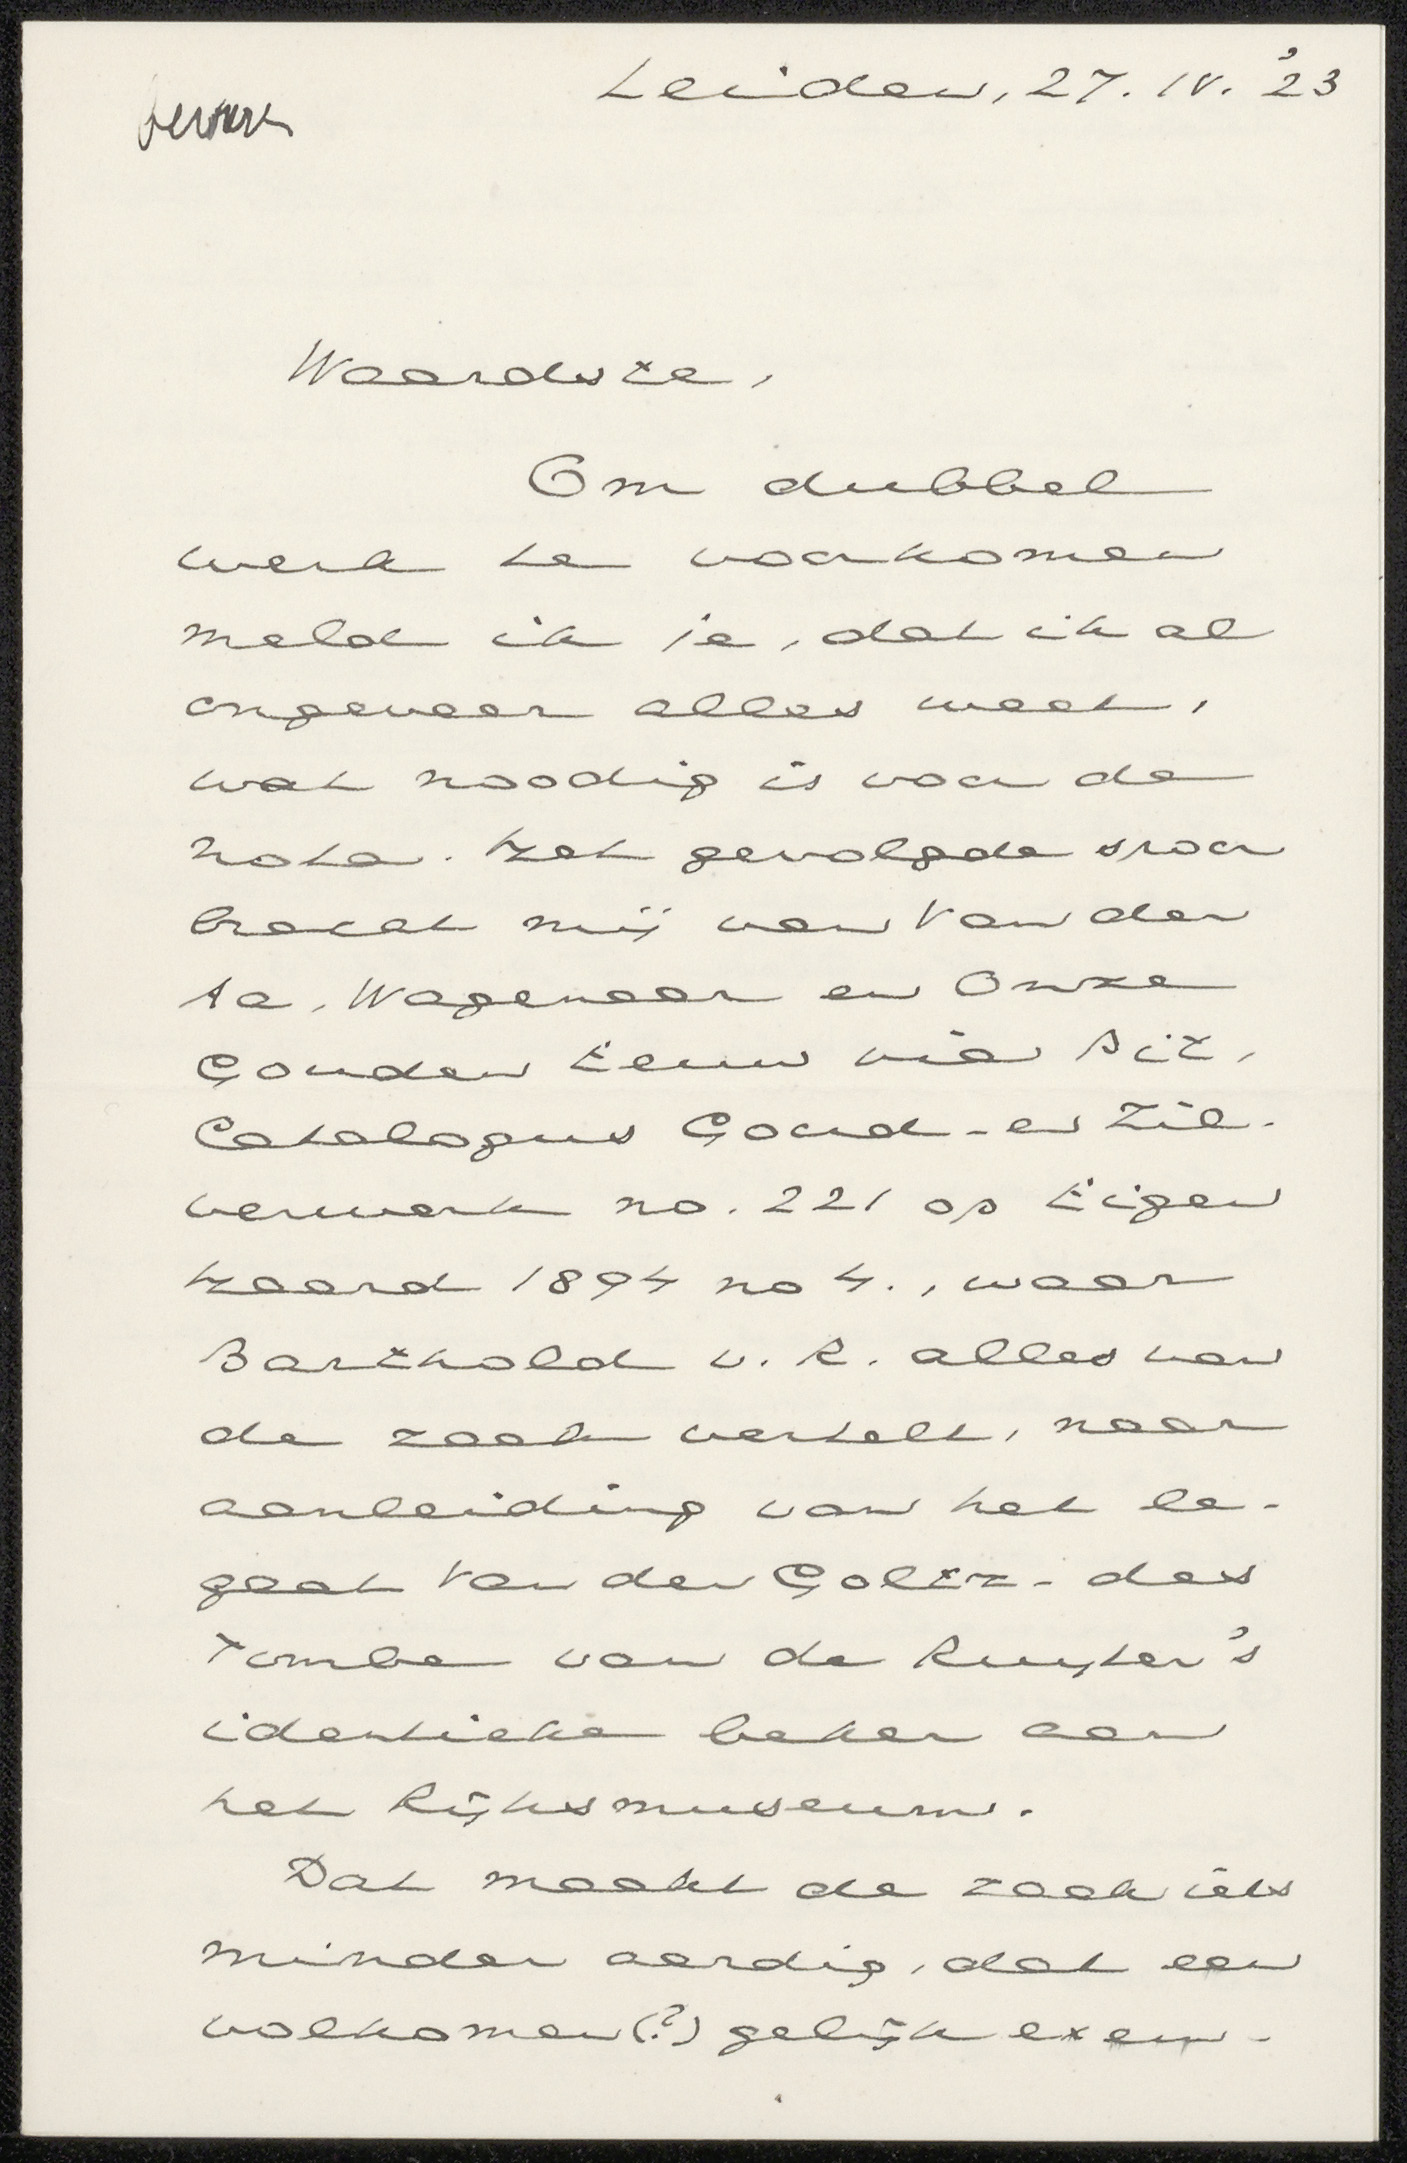 Leiden, 27. IV. '23
Waardste,
Om dubbel
werk te voorkomen
meld ik je, dat ik al
ongeveer alles weet,
wat noodig is voor de
nota. Het gevolgde spoor
bracht mij van Van der
Aa, Wagenaar en Onze
Gouden Eeuw via Cit,
Catalogus Goud- en Zil-
verwerk no. 221 op Eigen
Haard 1894 no 4., waar
Barthold v. R. alles van
de zaak vertelt, naar
aanleiding van het le-
gaat Van der Goltz- des
Tombe van de Ruyter's
identieke beker aan
het Rijksmuseum.
Dat maakt de zaak iets
minder aardig, dat een
volkomen (?) gelijk exem-